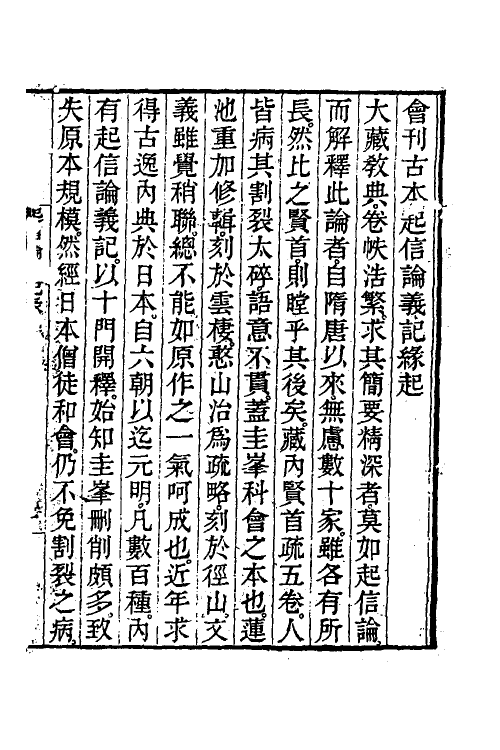 會刊古本起信論義記緣起
大藏敎典。卷帙浩繁。求其簡要精深者。莫如起信論。
而解釋此論者。自隋唐以來。無慮數十家。雖各有所
長。然比之賢首。則瞠乎其後矣。藏內賢首疏五卷。人
皆病其割裂太碎。語意不貫。蓋圭峯科會之本也。蓮
池重加修輯。刻於雲棲。憨山治爲疏略。刻於徑山。文
義雖覺稍聯。總不能如原作之一氣呵成也。近年求
得古逸內典於日本。自六朝以迄元明。凡數百種。內
有起信論義記。以十門開釋。始知圭峯刪削頗多。致
失原本規模。然經日本僧徒和會。仍不免割裂之病。